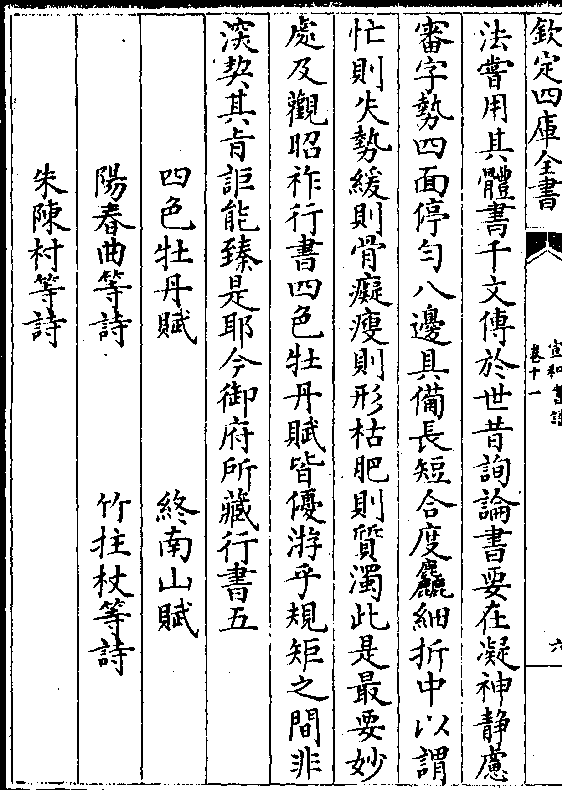 欽定四庫全書
宣和書譜
卷十一
六
法嘗用其體書千文傳於世昔詢論書要在凝神静慮
審字勢四面停匀八邊具備長短合度麤細折中以謂
忙則失勢緩則骨癡瘦則形枯肥則質濁此是最要妙
處及觀昭祚行書四色牡丹賦皆優游乎規矩之間非
深契其㫖詎能臻是耶今御府所藏行書五
四色牡丹賦 終南山賦
陽春曲等詩 竹拄杖等詩
朱陳村等詩